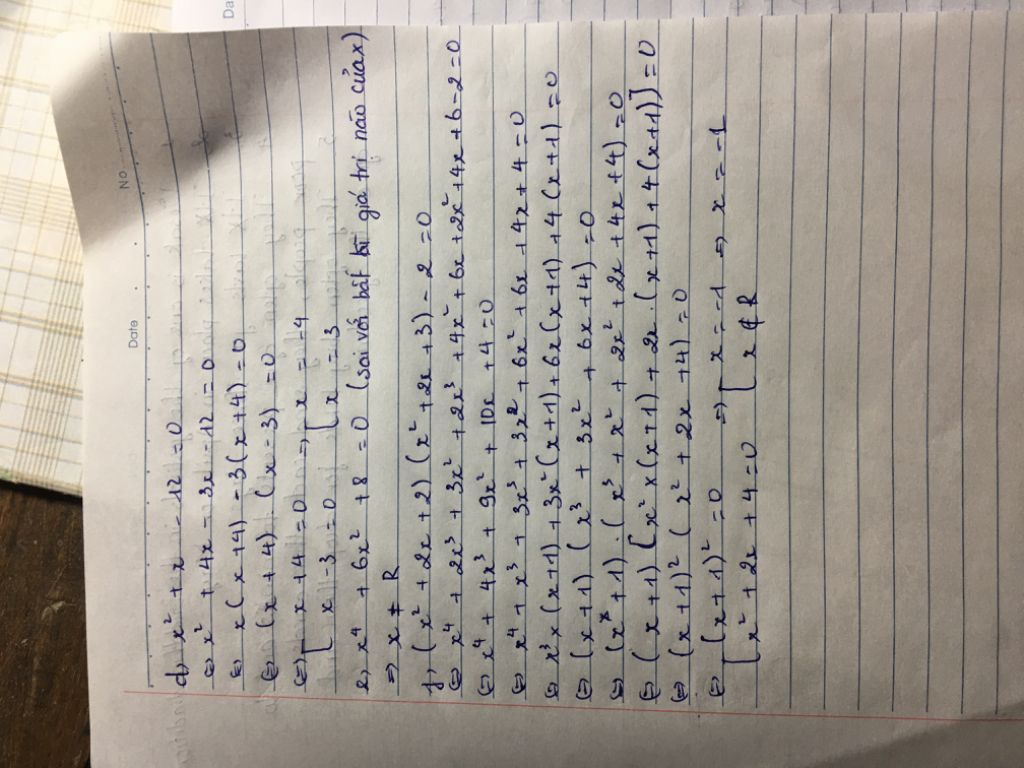 No
Date
d, x² + x - 12 = 0
⇔ x² + 4x - 3x - 12 = 0
⇔ x(x+4) - 3(x+4) = 0
⇔ (x+4).(x-3) = 0
⇔ [ x+4=0 ⇒ [ x = -4
[ x-3=0 [ x = 3
e, x⁴ + 6x² + 8 = 0 (sai với bất kì giá trị nào của x)
⇒ x ≠ R
f, (x² + 2x + 2)(x² + 2x + 3) - 2 = 0
⇔ x⁴ + 2x³ + 3x² + 2x³ + 4x² + 6x + 2x² + 4x + 6 - 2 = 0
⇔ x⁴ + 4x³ + 9x² + 10x + 4 = 0
⇔ x⁴ + x³ + 3x³ + 3x² + 6x² + 6x + 4x + 4 = 0
⇔ x³ x (x+1) + 3x² (x+1) + 6x (x+1) + 4 (x+1) = 0
⇔ (x+1) (x³ + 3x² + 6x + 4) = 0
⇔ (x+1).(x³ + x² + 2x² + 2x + 4x + 4) = 0
⇔ (x+1) [x² x (x+1) + 2x.(x+1) + 4(x+1)] = 0
⇔ (x+1)² (x² + 2x + 4) = 0
⇔ [ (x+1)² = 0 ⇒ [ x = -1 ⇒ x = -1
[ x² + 2x + 4 = 0 [ x ∉ R